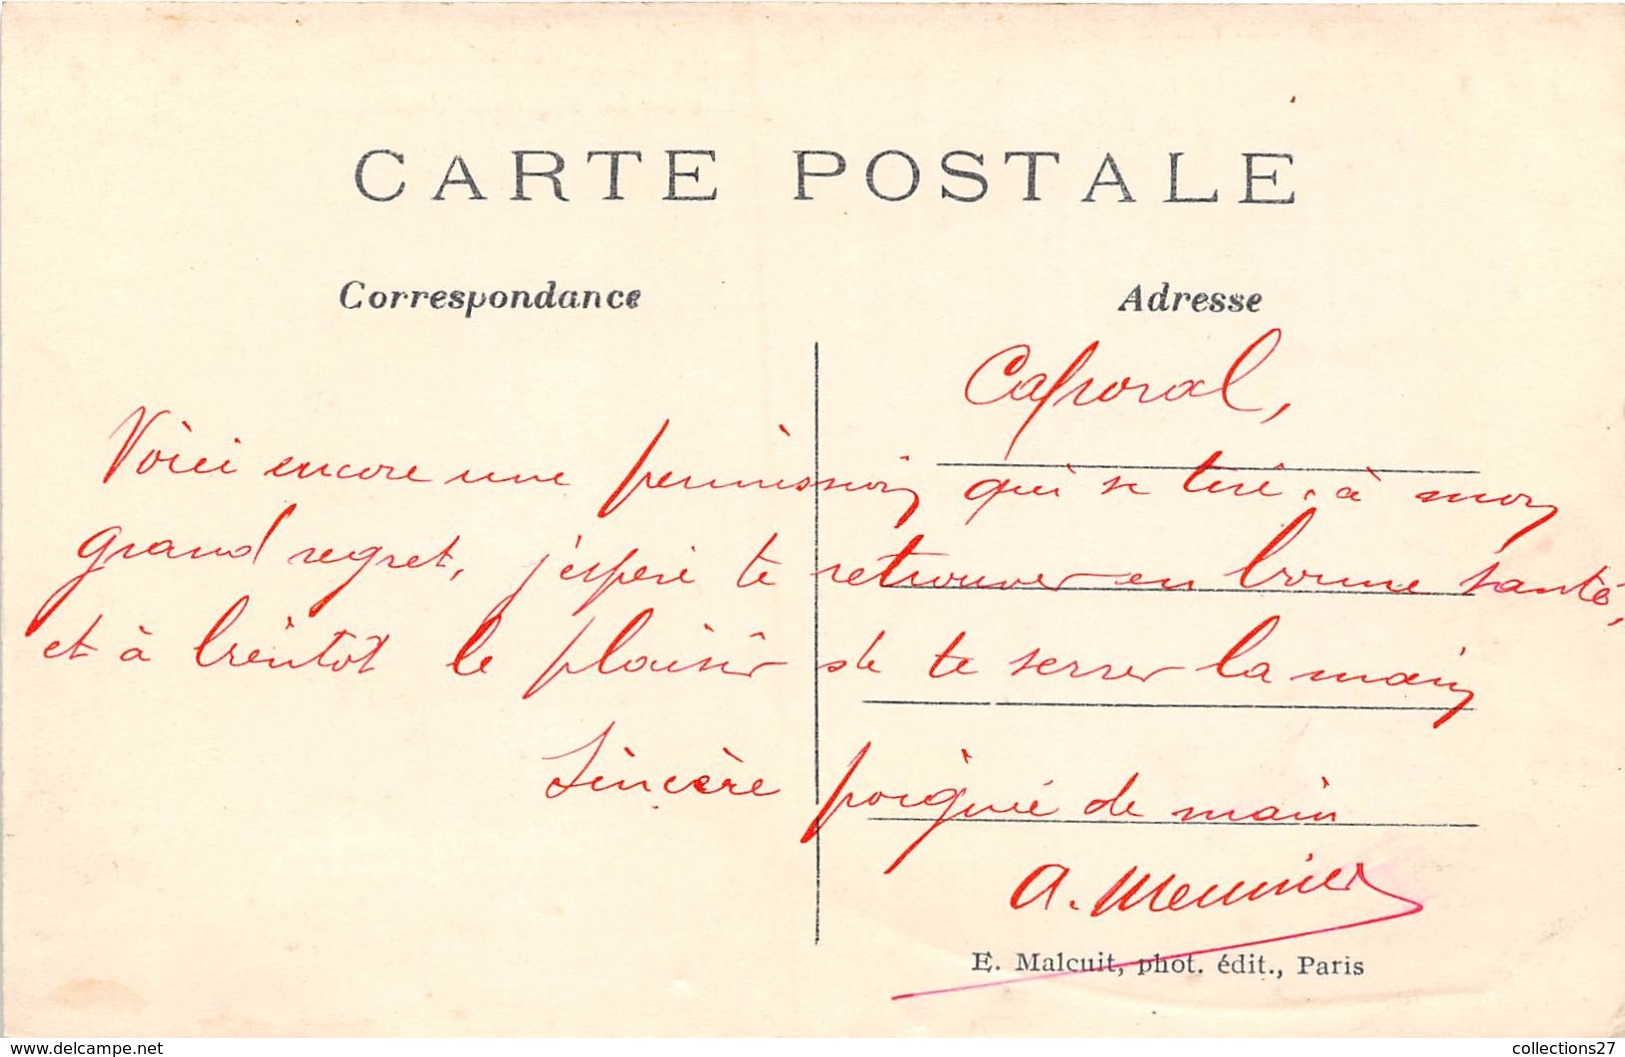 CARTE POSTALE
Correspondance
Adresse
Caporal,
Voici encore une permission qui se tire, à mon
grand regret, j'espère te retrouver en bonne santé,
et à bientôt le plaisir de te serrer la main
Sincère poignée de main
A. Meunier
E. Malcuit, phot. édit., Paris
www.delcampe.net
collections27